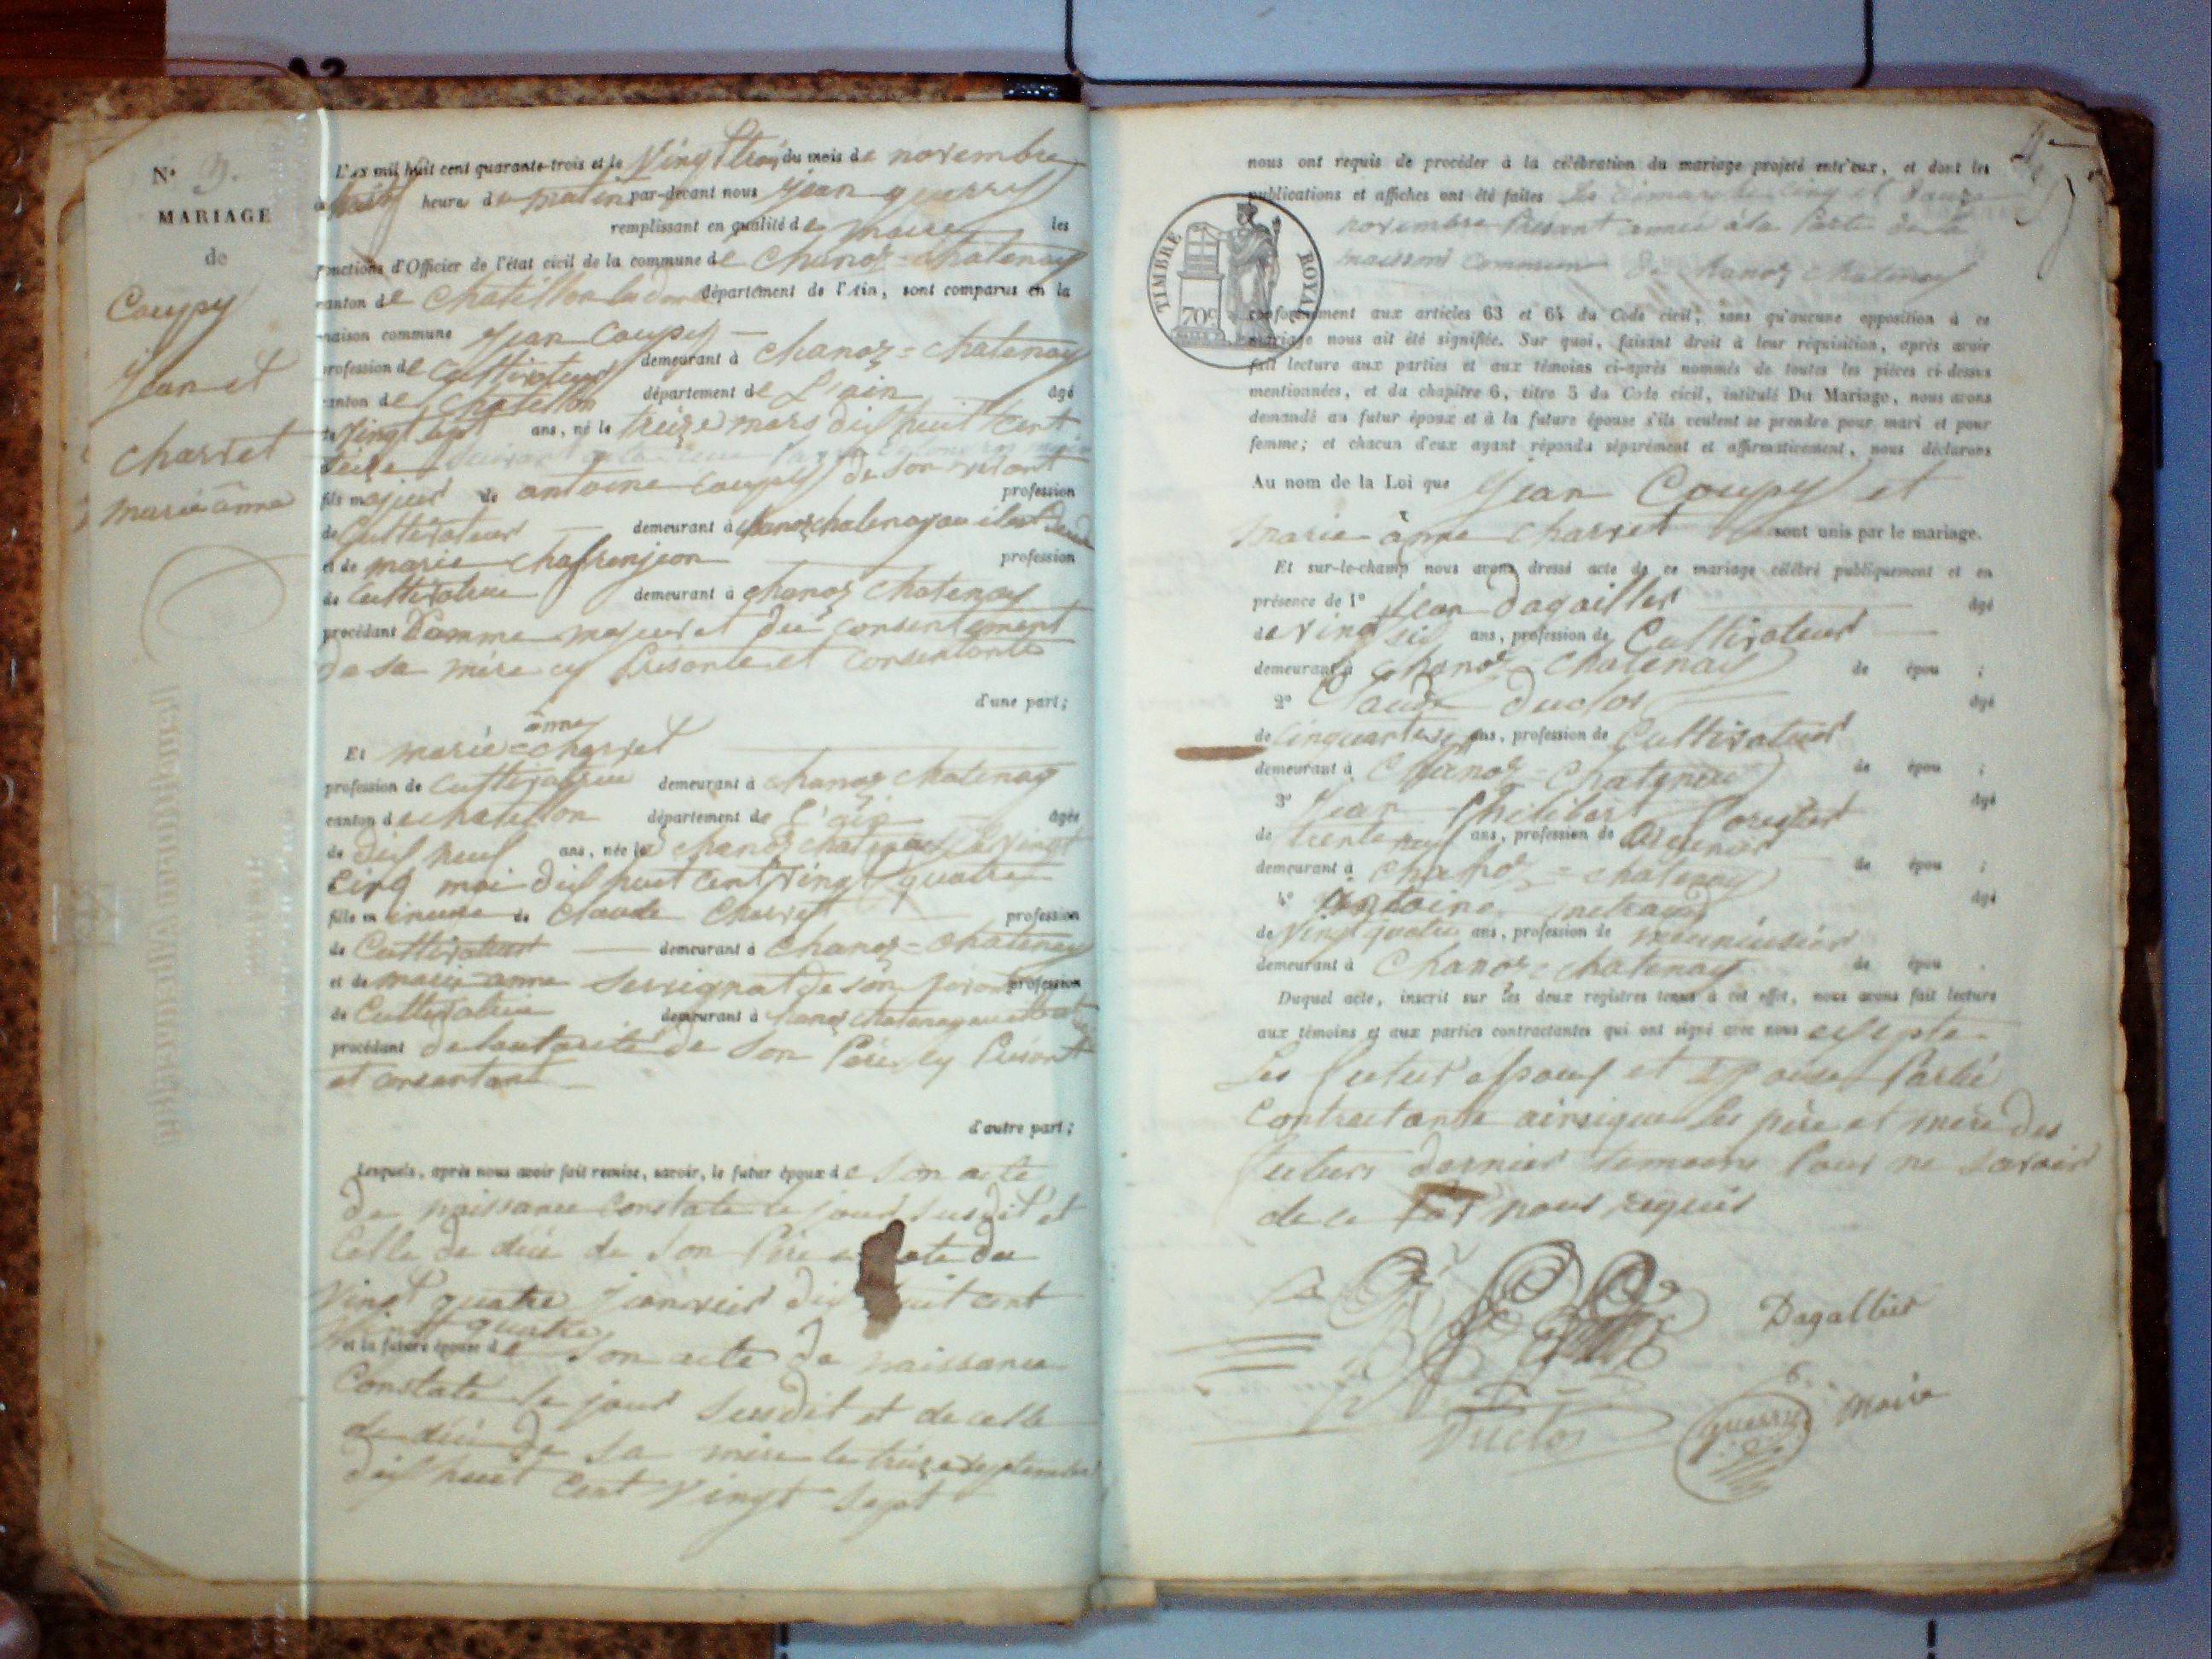 N° 9.
MARIAGE
de
Coupy
Jean et
Charvet
marie ânne
L'AN mil huit cent quarante-trois et le Vingt trois du mois de novembre
heure du matin par-devant nous Jean guerry
remplissant en qualité de maire les
fonctions d'Officier de l'état civil de la commune de Chanoz=Chatenay
canton de Chatillon département de l'Ain, sont comparus en la
maison commune Jean Coupy
profession de Cultivateur demeurant à Chanoz=Chatenay
canton de Chatillon département de L'ain âgé
de Vingt sept ans, né le treize mars dix huit cent
seize
fils majeur de antoine Coupy de son vivant profession
de Cultivateur demeurant à Chanoz chatenay ou il est
et de marie Chaffrenjeon profession
de Cultivatrice demeurant à Chanoz Chatenay
procédant Comme majeur et du consentement
de sa mère cy Présente et Consentante
d'une part;
ânne
Et marie=Charvet
profession de Cultivatrice demeurant à Chanoz chatenay
canton de chatillon département de l'ain âgée
de dix neuf ans, née à Chanoz chatenay le vingt
Cinq mai dix huit cent vingt quatre
fille mineure de Claude Charvet profession
de Cultivateur demeurant à Chanoz=Chatenay
et de marie anne Serrignat de son vivant profession
de Cultivatrice demeurant à Chanoz chatenay
procédant de lautorité de Son Père cy Présent
et consentant
d'autre part;
Lesquels, après nous avoir fait remise, savoir, le futur époux de Son acte
de naissance Constate le jour susdit et
Celle de décé de Son Père en date du
Vingt quatre Janvier dix huit cent
vingt quatre
et la future épouse de Son acte de naissance
Constate le jour susdit et de celle
de décé de Sa mère le treize septembre
dix huit Cent Vingt Sept
nous ont requis de procéder à la célébration du mariage projeté entr'eux, et dont les
publications et affiches ont été faites les dimanches cinq et douze
novembre Présent année à la Porte de la
maison Commune de Chanoz Chatenay
TIMBRE ROYAL
70c
conformément aux articles 63 et 64 du Code civil, sans qu'aucune opposition à ce
mariage nous ait été signifiée. Sur quoi, faisant droit à leur réquisition, après avoir
fait lecture aux parties et aux témoins ci-après nommés de toutes les pièces ci-dessus
mentionnées, et du chapitre 6, titre 5 du Code civil, intitulé Du Mariage, nous avons
demandé au futur époux et à la future épouse s'ils veulent se prendre pour mari et pour
femme; et chacun d'eux ayant répondu séparément et affirmativement, nous déclarons
Au nom de la Loi que Jean Coupy et
Marie ânne Charvet sont unis par le mariage.
Et sur-le-champ nous avons dressé acte de ce mariage célébré publiquement et en
présence de 1° Jean dagallier âgé
de Vingt six ans, profession de Cultivateur
demeurant à Chanoz=Chatenay de épou ;
2° Claude Duclos âgé
de Cinquante ans, profession de Cultivateur
demeurant à Chanoz=Chatenay de épou ;
3° Jean Philibert âgé
de trente neuf ans, profession de
demeurant à Chanoz=chatenay de épou ;
4° Antoine metraux âgé
de Vingt quatre ans, profession de menuisier
demeurant à Chanoz=chatenay de épou .
Duquel acte, inscrit sur les deux registres tenus à cet effet, nous avons fait lecture
aux témoins et aux parties contractantes qui ont signé avec nous excepte
Les futur Epoux et Epouse Partie
Contractante ainsi que les père et mère des
futurs dernier temoin Pour ne Savoir
de ce nous requis
Dagallier
Duclos
guerry
Maire